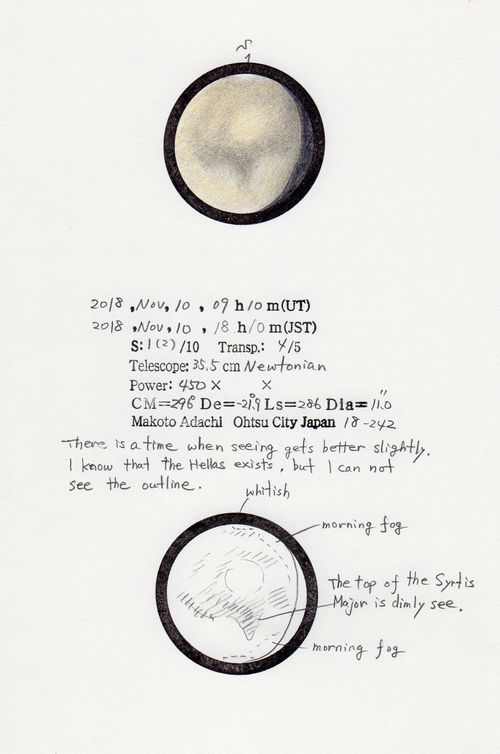 S
2018, Nov, 10, 09 h 10 m(UT)
2018, Nov, 10, 18 h 10 m(JST)
S: 1 (2) /10 Transp.: 4/5
Telescope: 35.5 cm Newtonian
Power: 450 × ×
CM=296° De=-21.9° Ls=286 Dia=11.0"
Makoto Adachi Ohtsu City Japan 18-242
There is a time when seeing gets better slightly.
I know that the Hellas exists, but I can not
see the outline.
whitish
morning fog
The top of the Syrtis
Major is dimly see.
morning fog